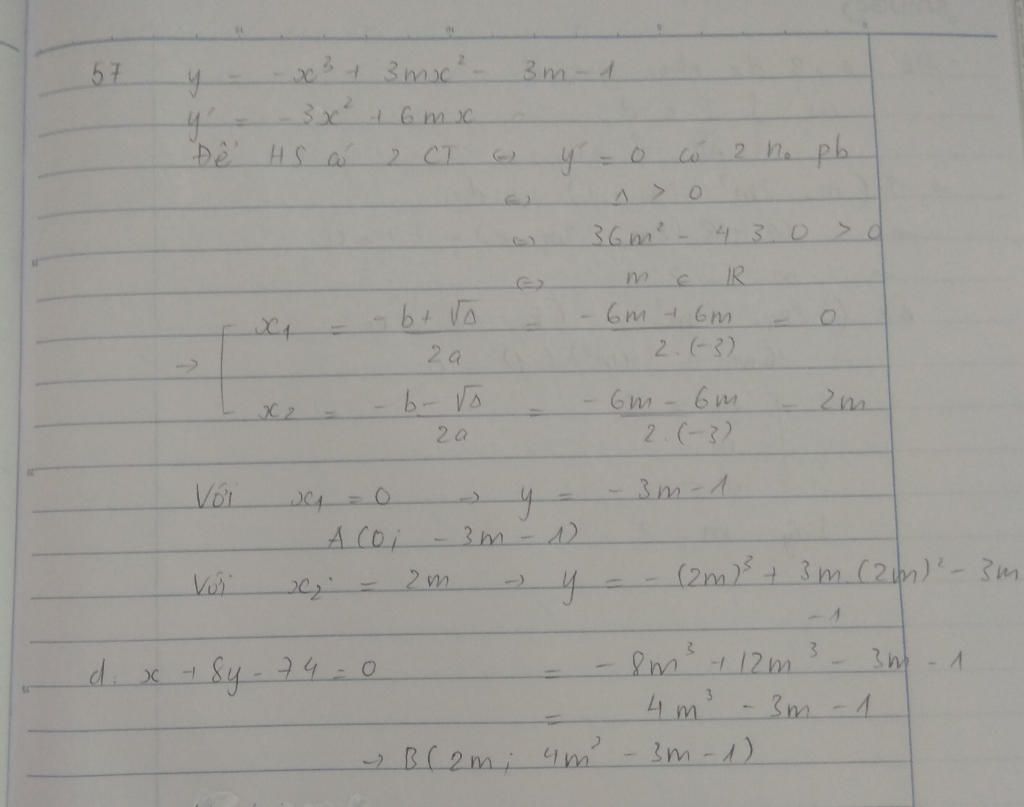 57 y = -x³ + 3mx² - 3m - 1
y' = -3x² + 6mx
Để HS có 2 CT ⇔ y' = 0 có 2 no pb
⇔ Δ > 0
⇔ 36m² - 4.3.0 > 0
⇔ m ∈ ℝ
→ [ x₁ = (-b + √Δ)/2a = (-6m + 6m)/2.(-3) = 0
x₂ = (-b - √Δ)/2a = (-6m - 6m)/2.(-3) = 2m
Với x₁ = 0 → y = -3m - 1
A(0; -3m - 1)
Với x₂ = 2m → y = -(2m)³ + 3m(2m)² - 3m
-1
d: x + 8y - 74 = 0 = -8m³ + 12m³ - 3m - 1
= 4m³ - 3m - 1
→ B(2m; 4m³ - 3m - 1)